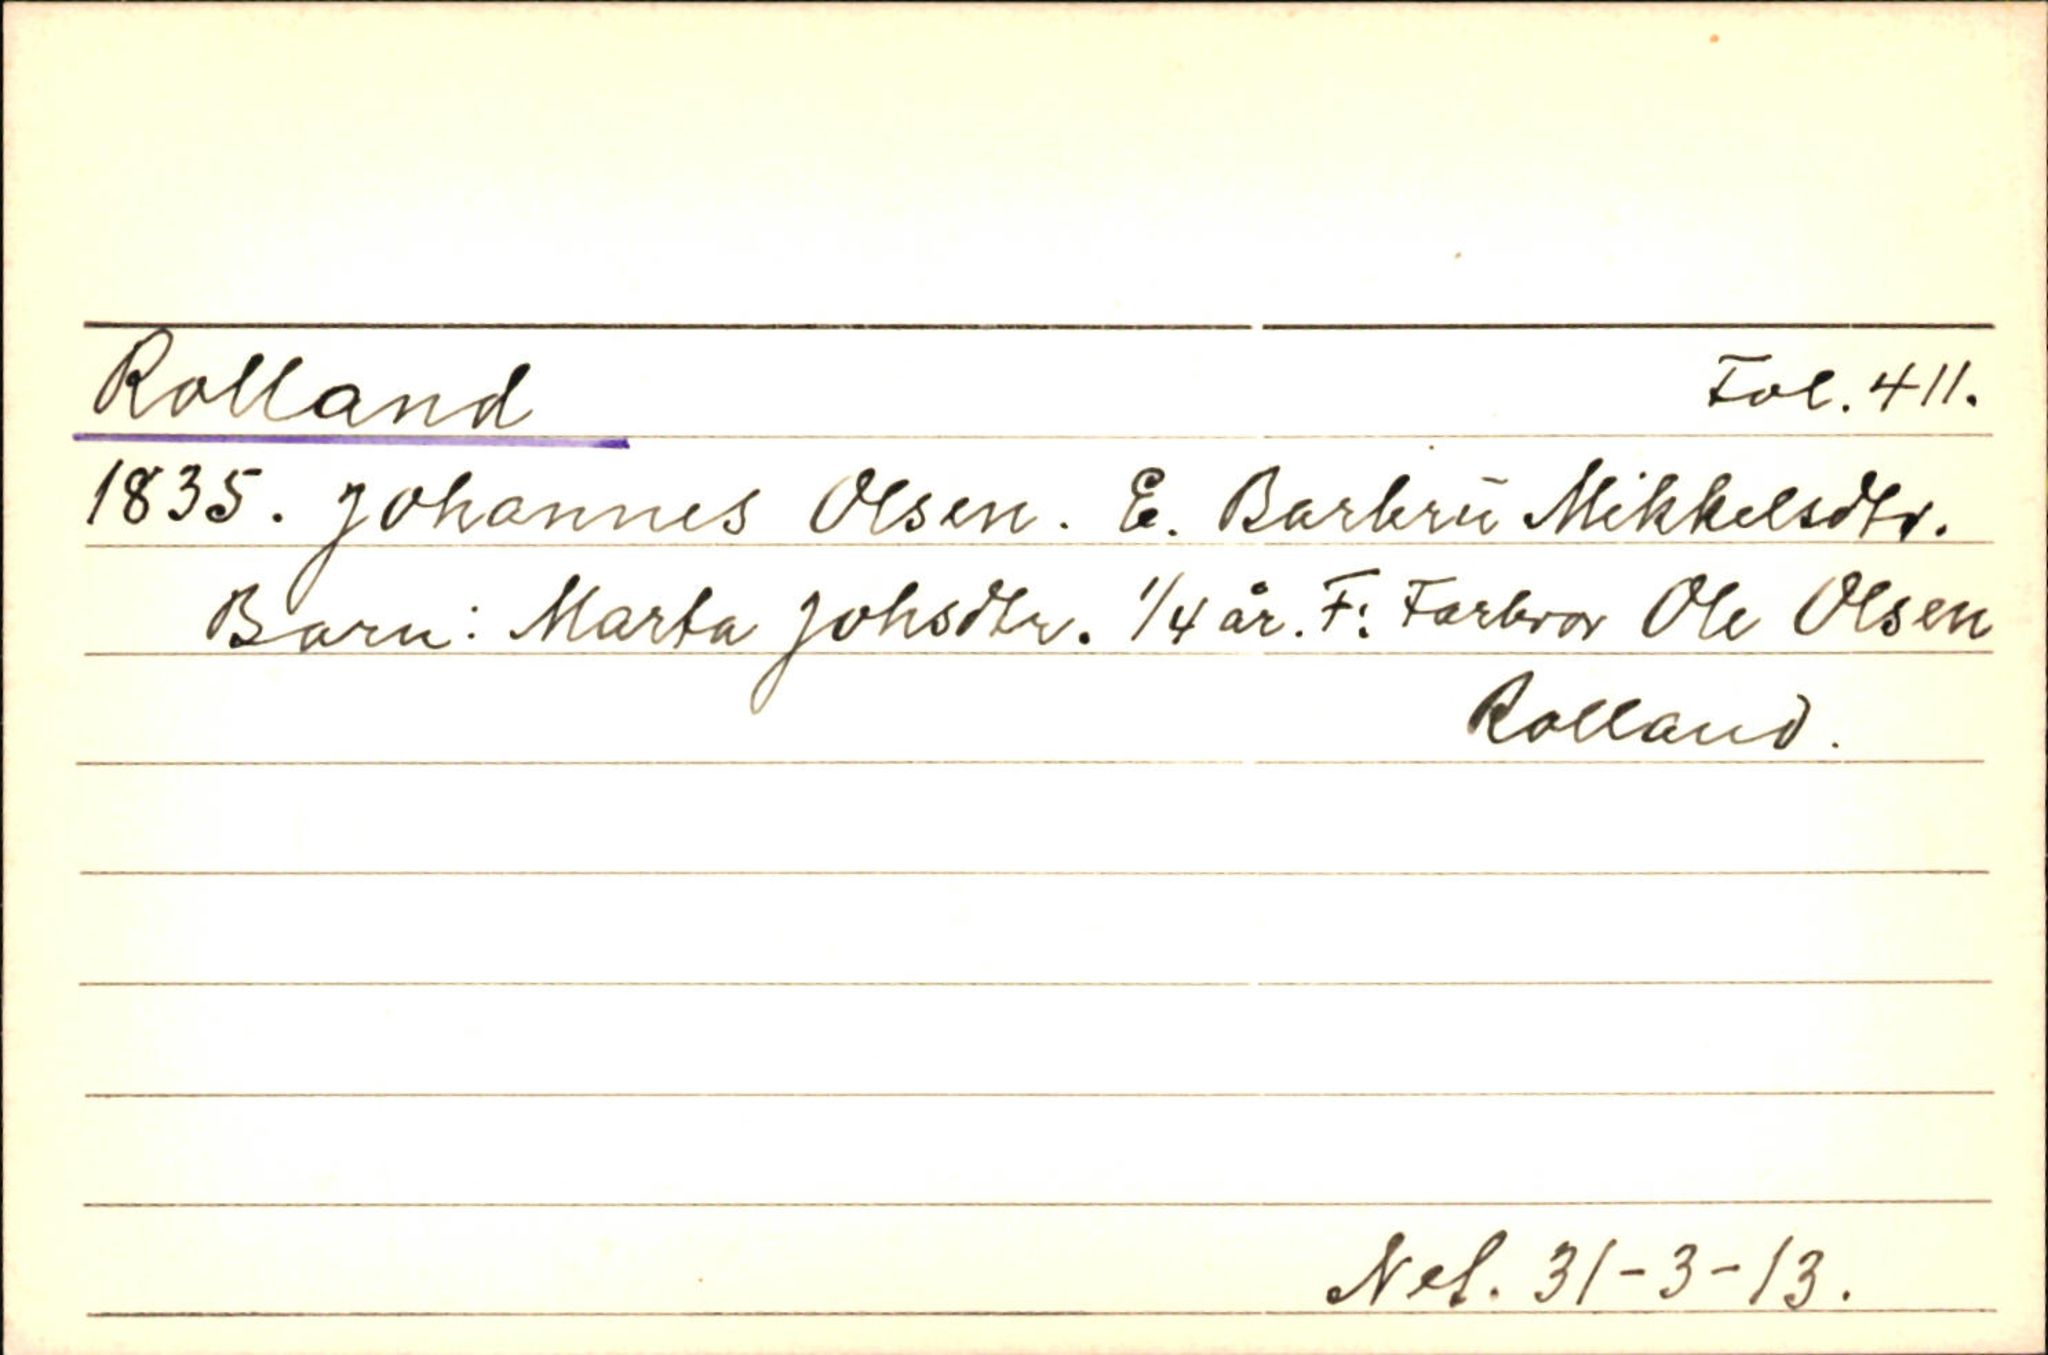 Rolland Fol. 411.
1835. Johannes Olsen. E. Barbrū Mikkelsdtr.
Barn: Marta Johsdtr. 1/4 år. F: Farbror Ole Olsen
Rolland.
Net. 31-3-13.